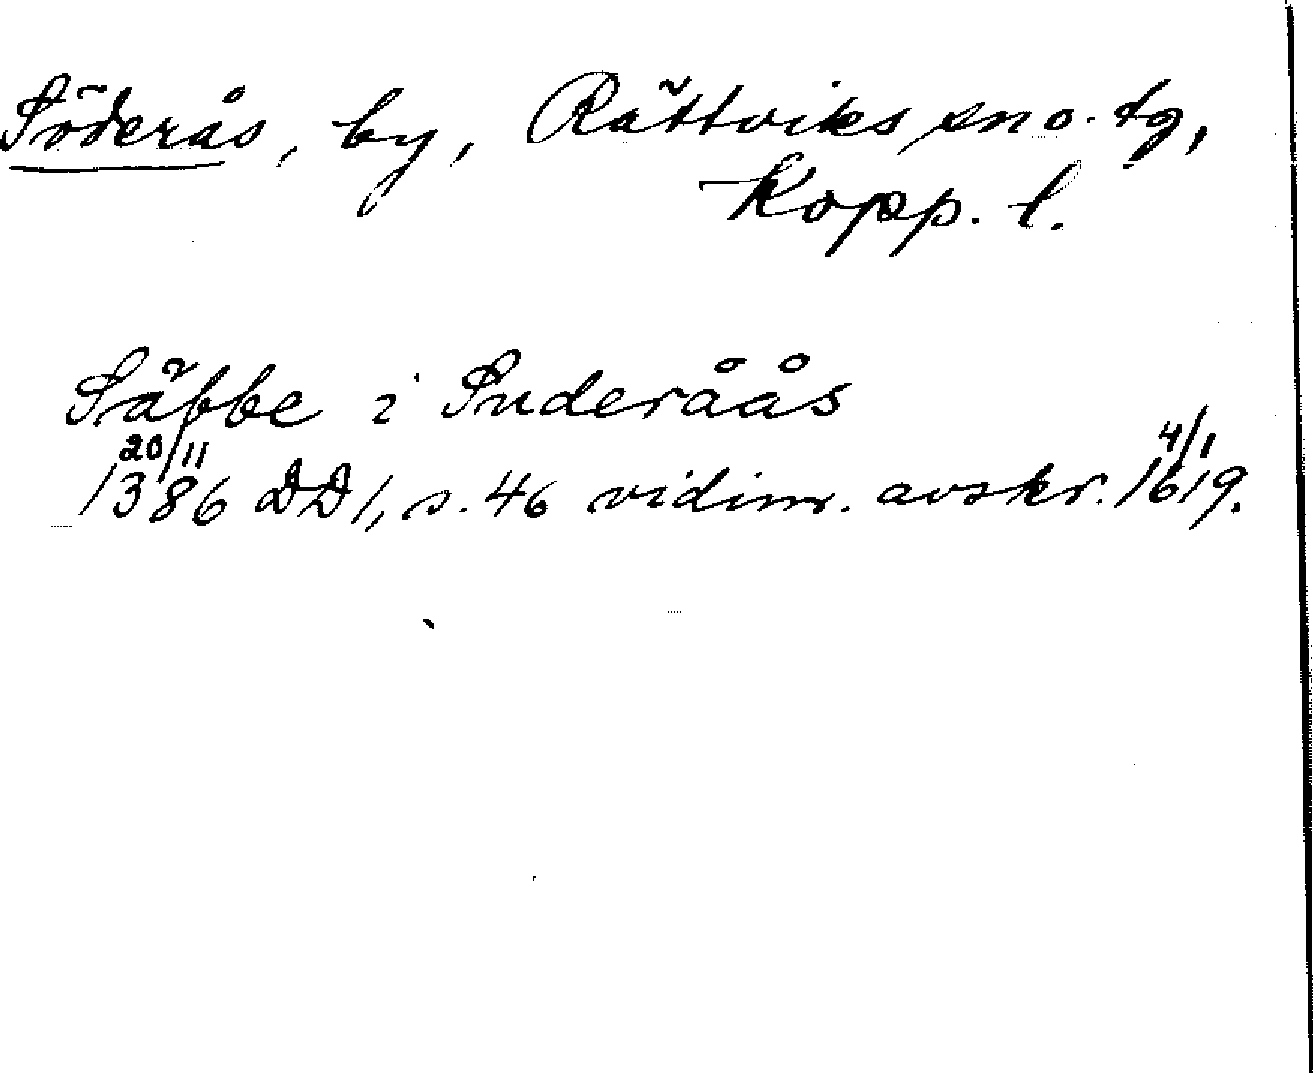 Söderås, by, Rättviks sn o. tg,
Kopp. l.
Säbbe i Suderåås
20/11 1386 DD 1, s. 46 vidim. avskr. 4/1 1619.